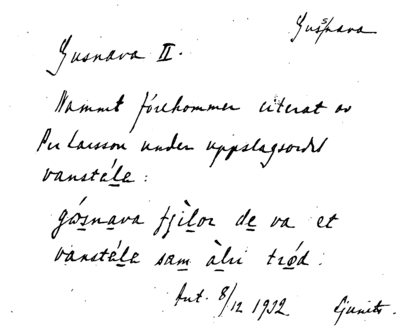 Gussnava
Gusnava II.
Namnet förekommer citerat av
Per Larsson under uppslagsordet
vanstéle:
gǿsnava fjìlor de va et
vanstéle sam àlri trǿd.
Ant. 8/12 1932.